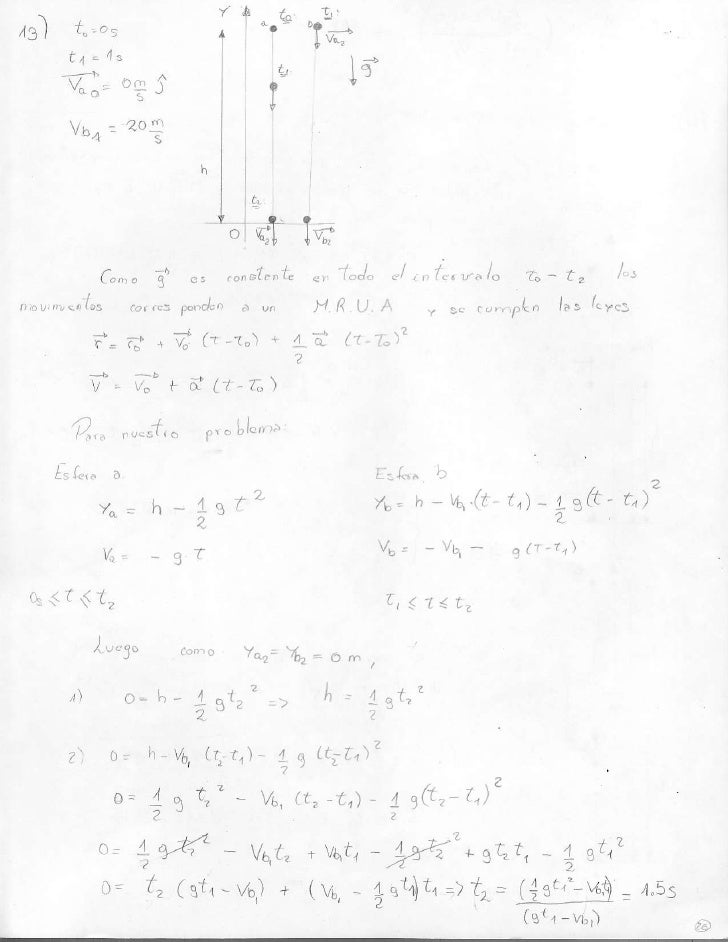 13) t₀=0s
t₁=1s
Va₀ = 0 m/s ĵ
Vb₁ = -20 m/s
Y a t₀ b t₁
Va₂
g
t₁
h
t₂
O Va₂ Vb₂
Como g es constante en todo el intervalo t₀ - t₂ los
movimientos corresponden a un M.R.U.A y se cumplen las leyes
r = r₀ + V₀ (t-t₀) + 1/2 a (t-t₀)²
V = V₀ + a (t-t₀)
Para nuestro problema:
Esfera a Esfera b
Ya = h - 1/2 g t² Yb = h - Vb₁·(t-t₁) - 1/2 g(t-t₁)²
Va = - g·t Vb = - Vb₁ - g(t-t₁)
0s ≤ t ≤ t₂ t₁ ≤ t ≤ t₂
Luego como Ya₂ = Yb₂ = 0 m,
1) 0 = h - 1/2 g t₂² => h = 1/2 g t₂²
2) 0 = h - Vb₁ (t₂-t₁) - 1/2 g (t₂-t₁)²
0 = 1/2 g t₂² - Vb₁ (t₂-t₁) - 1/2 g(t₂-t₁)²
0 = 1/2 g t₂² - Vb₁t₂ + Vb₁t₁ - 1/2 g t₂² + g t₂ t₁ - 1/2 g t₁²
0 = t₂ (gt₁ - Vb₁) + (Vb₁ - 1/2 g t₁) t₁ => t₂ = (1/2 g t₁² - Vb₁t₁)/(gt₁ - Vb₁) = 1.5s